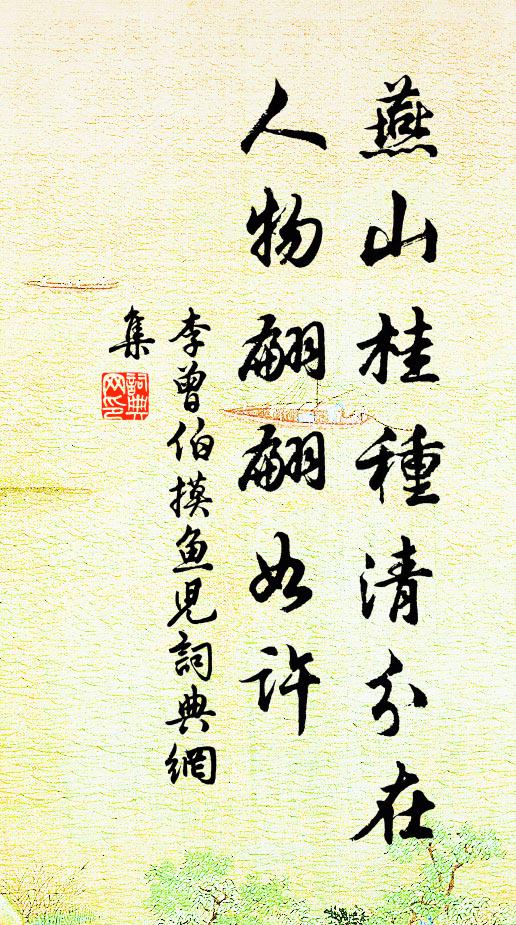 燕山桂種清分在
人物翩翩如許
李曾伯摸魚児詞典網
集
詞典
网印